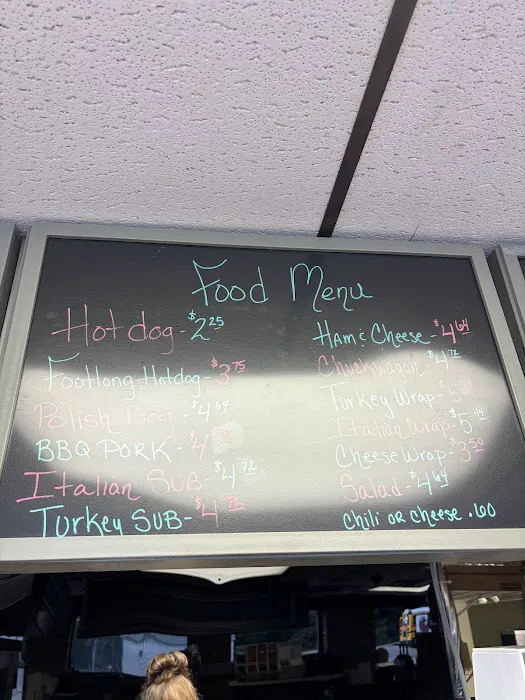 Food Menu
Hot dog - $2.25
Footlong Hotdog - $3.75
Polish Dog $4.64
BBQ PORK - $4
Italian SUB - $4.72
Turkey SUB - $4.72
HAM & Cheese - $4.64
Chuckwagon $4.72
Turkey Wrap - $5
Italian Wrap - $5.44
Cheese Wrap - $3.50
Salad - $4.64
Chili or Cheese .60